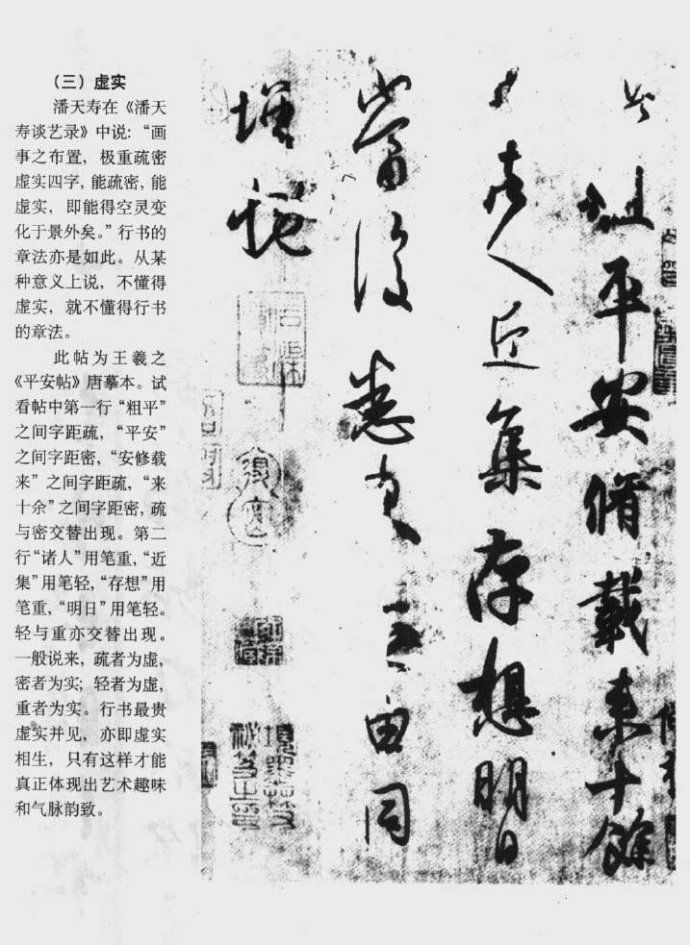 （三）虚实
潘天寿在《潘天
寿谈艺录》中说：“画
事之布置，极重疏密
虚实四字，能疏密，能
虚实，即能得空灵变
化于景外矣。”行书的
章法亦是如此。从某
种意义上说，不懂得
虚实，就不懂得行书
的章法。
此帖为王羲之
《平安帖》唐摹本。试
看帖中第一行“粗平”
之间字距疏，“平安”
之间字距密，“安修载
来”之间字距疏，“来
十余”之间字距密，疏
与密交替出现。第二
行“诸人”用笔重，“近
集”用笔轻，“存想”用
笔重，“明日”用笔轻。
轻与重亦交替出现。
一般说来，疏者为虚，
密者为实；轻者为虚，
重者为实。行书最贵
虚实并见，亦即虚实
相生，只有这样才能
真正体现出艺术趣味
和气脉韵致。
此粗平安脩載来十餘
日諸人近集存想明日
當復悉来無由同
增慨